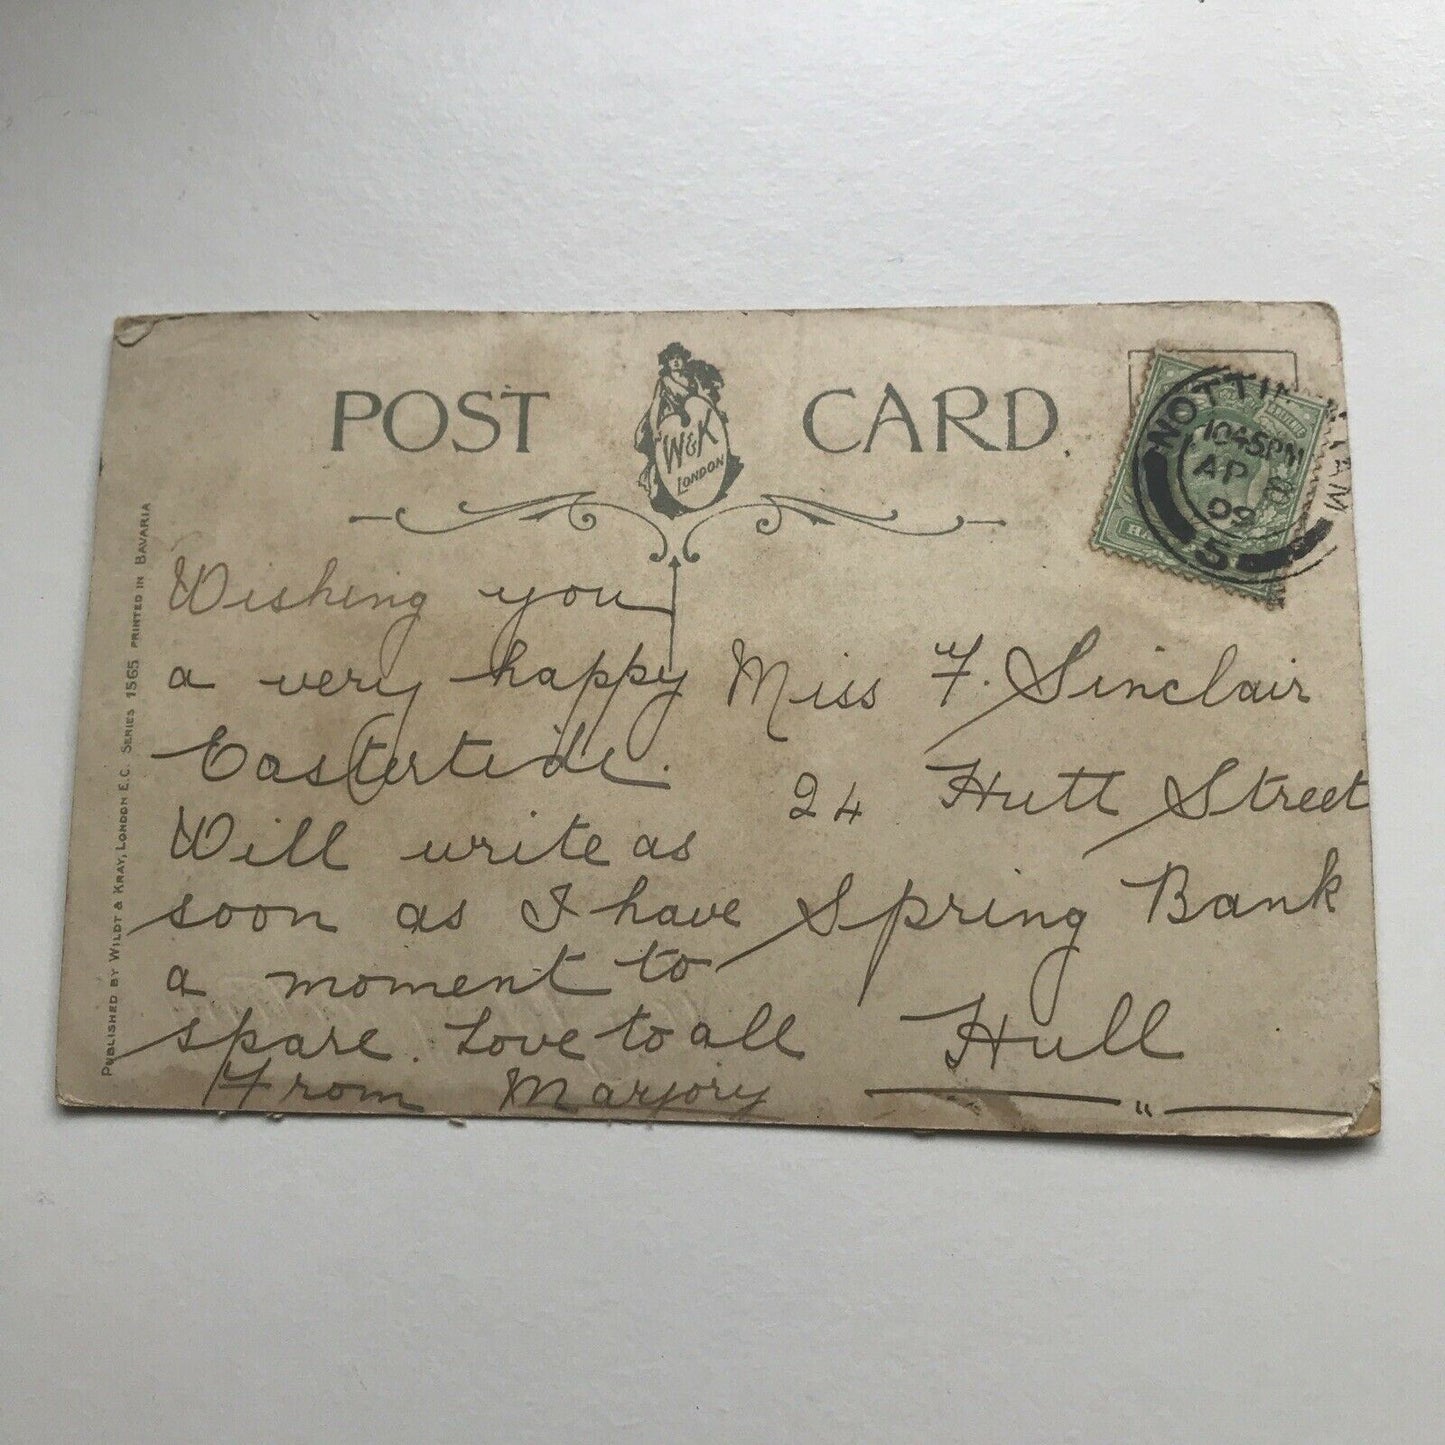 POST CARD.
W&K
LONDON
NOTTIN AM
10 45PM
AP
09
5
Wishing you
a very happy
Eastertide.
Will write as
soon as I have
a moment to
spare. Love to all
From Marjory
Miss F. Sinclair
24 Hutt Street
Spring Bank
Hull
PUBLISHED BY WILDT & KRAY, LONDON E.C. SERIES 1565 PRINTED IN BAVARIA